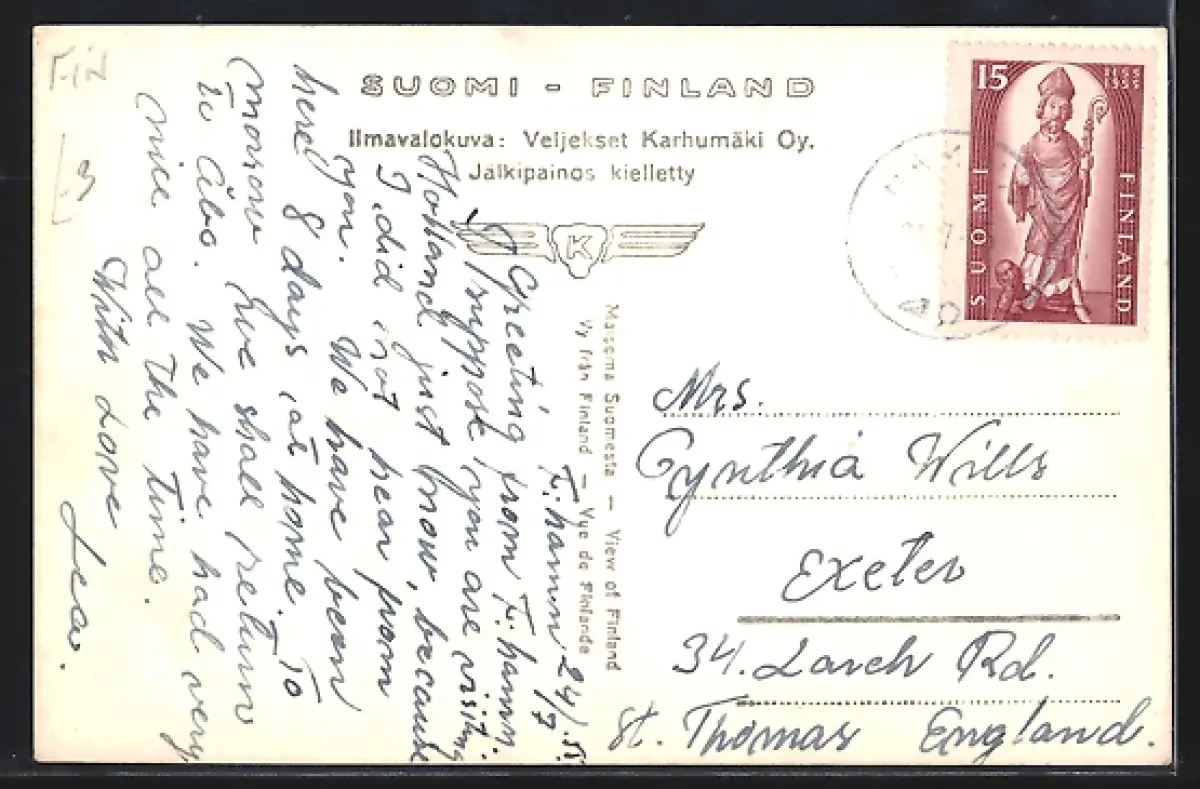 SUOMI - FINLAND
Ilmavalokuva: Veljekset Karhumäki Oy.
Jälkipainos kielletty
K
15
1155
1955
SUOMI
FINLAND
Maisema Suomesta — View of Finland
Vy från Finland — Vue de Finlande
F:hamn 24/7 55.
Greeting from F:hamn.
I suppose you are visiting
Holland just know, because
I did not hear from
you. We have been
here 8 days at home. To
morrow Eve shall return
to Åbo. We have had very
nice all the time.
With Love
Mrs.
Cynthia Wills
Exeter
34. Larch Rd.
St. Thomas England.